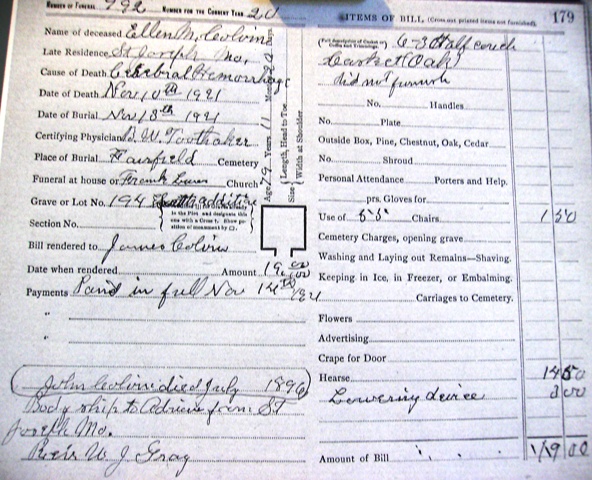 NUMBER OF FUNERAL 792 NUMBER FOR THE CURRENT YEAR 20
Name of deceased Ellen M. Colvin
Late Residence St Joseph Mo,
Cause of Death Cerebral Hemorrhage
Date of Death Nov 10th 1921
Date of Burial Nov 13th 1921
Certifying Physician W. Toothaker
Place of Burial Fairfield Cemetery
Funeral at house or Frank Church
Grave or Lot No. 194
in the Plot and designate this
one with a Cross †. Show po-
sition of monument by □.
Section No.
Bill rendered to James Colvin
Date when rendered Amount 19.00
Payments Paid in full Nov 14th 1921
"
"
John Colvin died July 1896
Body ship to Adrian from St
Joseph Mo.
Rev W J Gray
Age 79 Years 11 Months Days
Length, Head to Toe
Size Width at Shoulder
ITEMS OF BILL, (Cross out printed items not furnished). 179
(Full description of Casket or Coffin and Trimmings.) 6-3 Half couch
Casket (Oak)
did not furnish
No. Handles
No. Plate
Outside Box, Pine, Chestnut, Oak, Cedar
No. Shroud
Personal Attendance Porters and Help.
prs. Gloves for
Use of Chairs 1 50
Cemetery Charges, opening grave
Washing and Laying out Remains—Shaving.
Keeping in Ice, in Freezer, or Embalming.
Carriages to Cemetery.
Flowers
Advertising
Crape for Door
Hearse 14 50
Lowering device 3 00
Amount of Bill 19 00